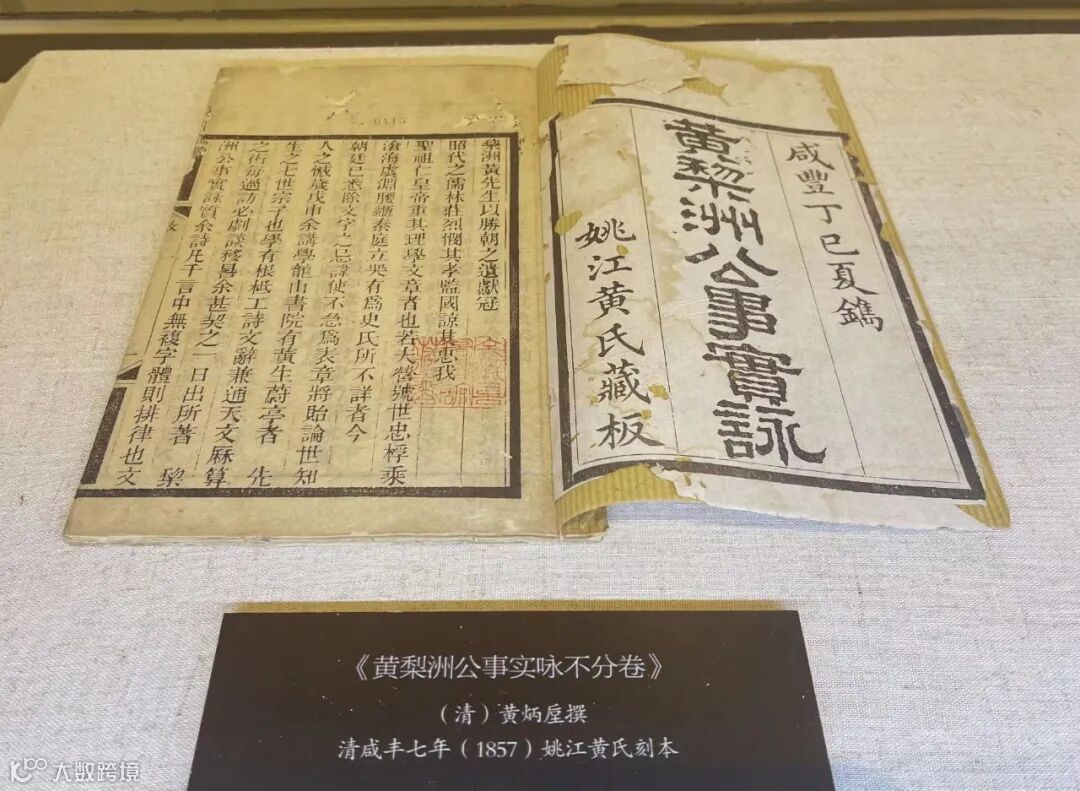 咸豐丁巳夏鐫
黃棃洲公事實詠
姚江黃氏藏板
棃洲黃先生以勝朝之遺獻冠
昭代之儒林莊烈憫其孝監國諒其忠我
聖祖仁皇帝重其理學文章者也若大營號世忠桴乘
滄海虞淵腰纏秦庭立哭有爲史氏所不詳者今
朝廷已悉除文字之忌諱使不急爲表章將貽論世知
人之憾歲戊申余講學龍山書院有黃生蔚亭者 先
生之七世宗子也學有根柢工詩文辭兼通天文厤算
之術每過訪必劇談移晷余甚契之一日出所著 棃
洲公事實詠質余詩凡千言中無複字體則排律也文
《黄梨洲公事实咏不分卷》
（清）黄炳垕撰
清咸丰七年（1857）姚江黄氏刻本
大数跨境